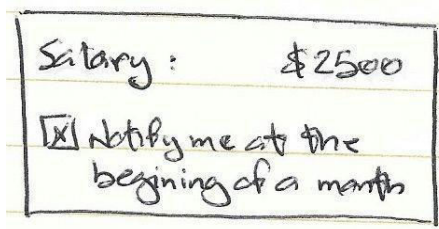 Salary: $2500
[x] Notify me at the
begining of a month